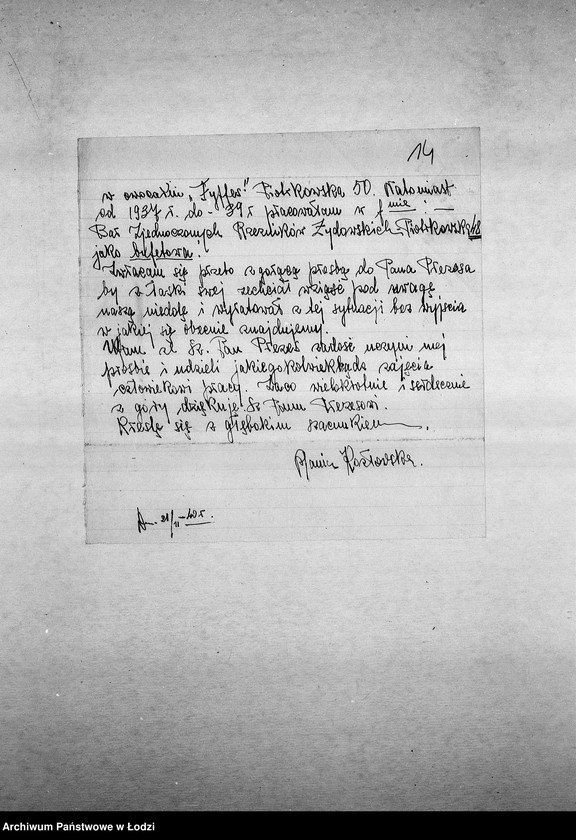 14
w owocarni „Fyffes" Piotrkowska 50. Natomiast
od 1937 r. do - 39 r pracowałam w fmie : —
Bar Zjednoczonych Rzeźników Żydowskich Piotrkowska 48
jako bufetowa!
Zwracam się przeto z gorącą prośbą do Pana Prezesa
by z łaski swej zechciał wziąść pod uwagę
naszą niedolę i wyratował z tej sytuacji bez wyjścia
w jakiej się obecnie znajdujemy.
Ufam że Sz. Pan Prezes zadość uczyni mej
prośbie i udzieli jakiegokolwiekbądź zajęcia
człowiekowi pracy. Za co wielokrotnie i serdecznie
z góry dziękuję Sz. Panu Prezesowi.
Kreślę się z głębokim szacunkiem.
Mania Kozłowska.
21/II - 40 r.
Archiwum Państwowe w Łodzi